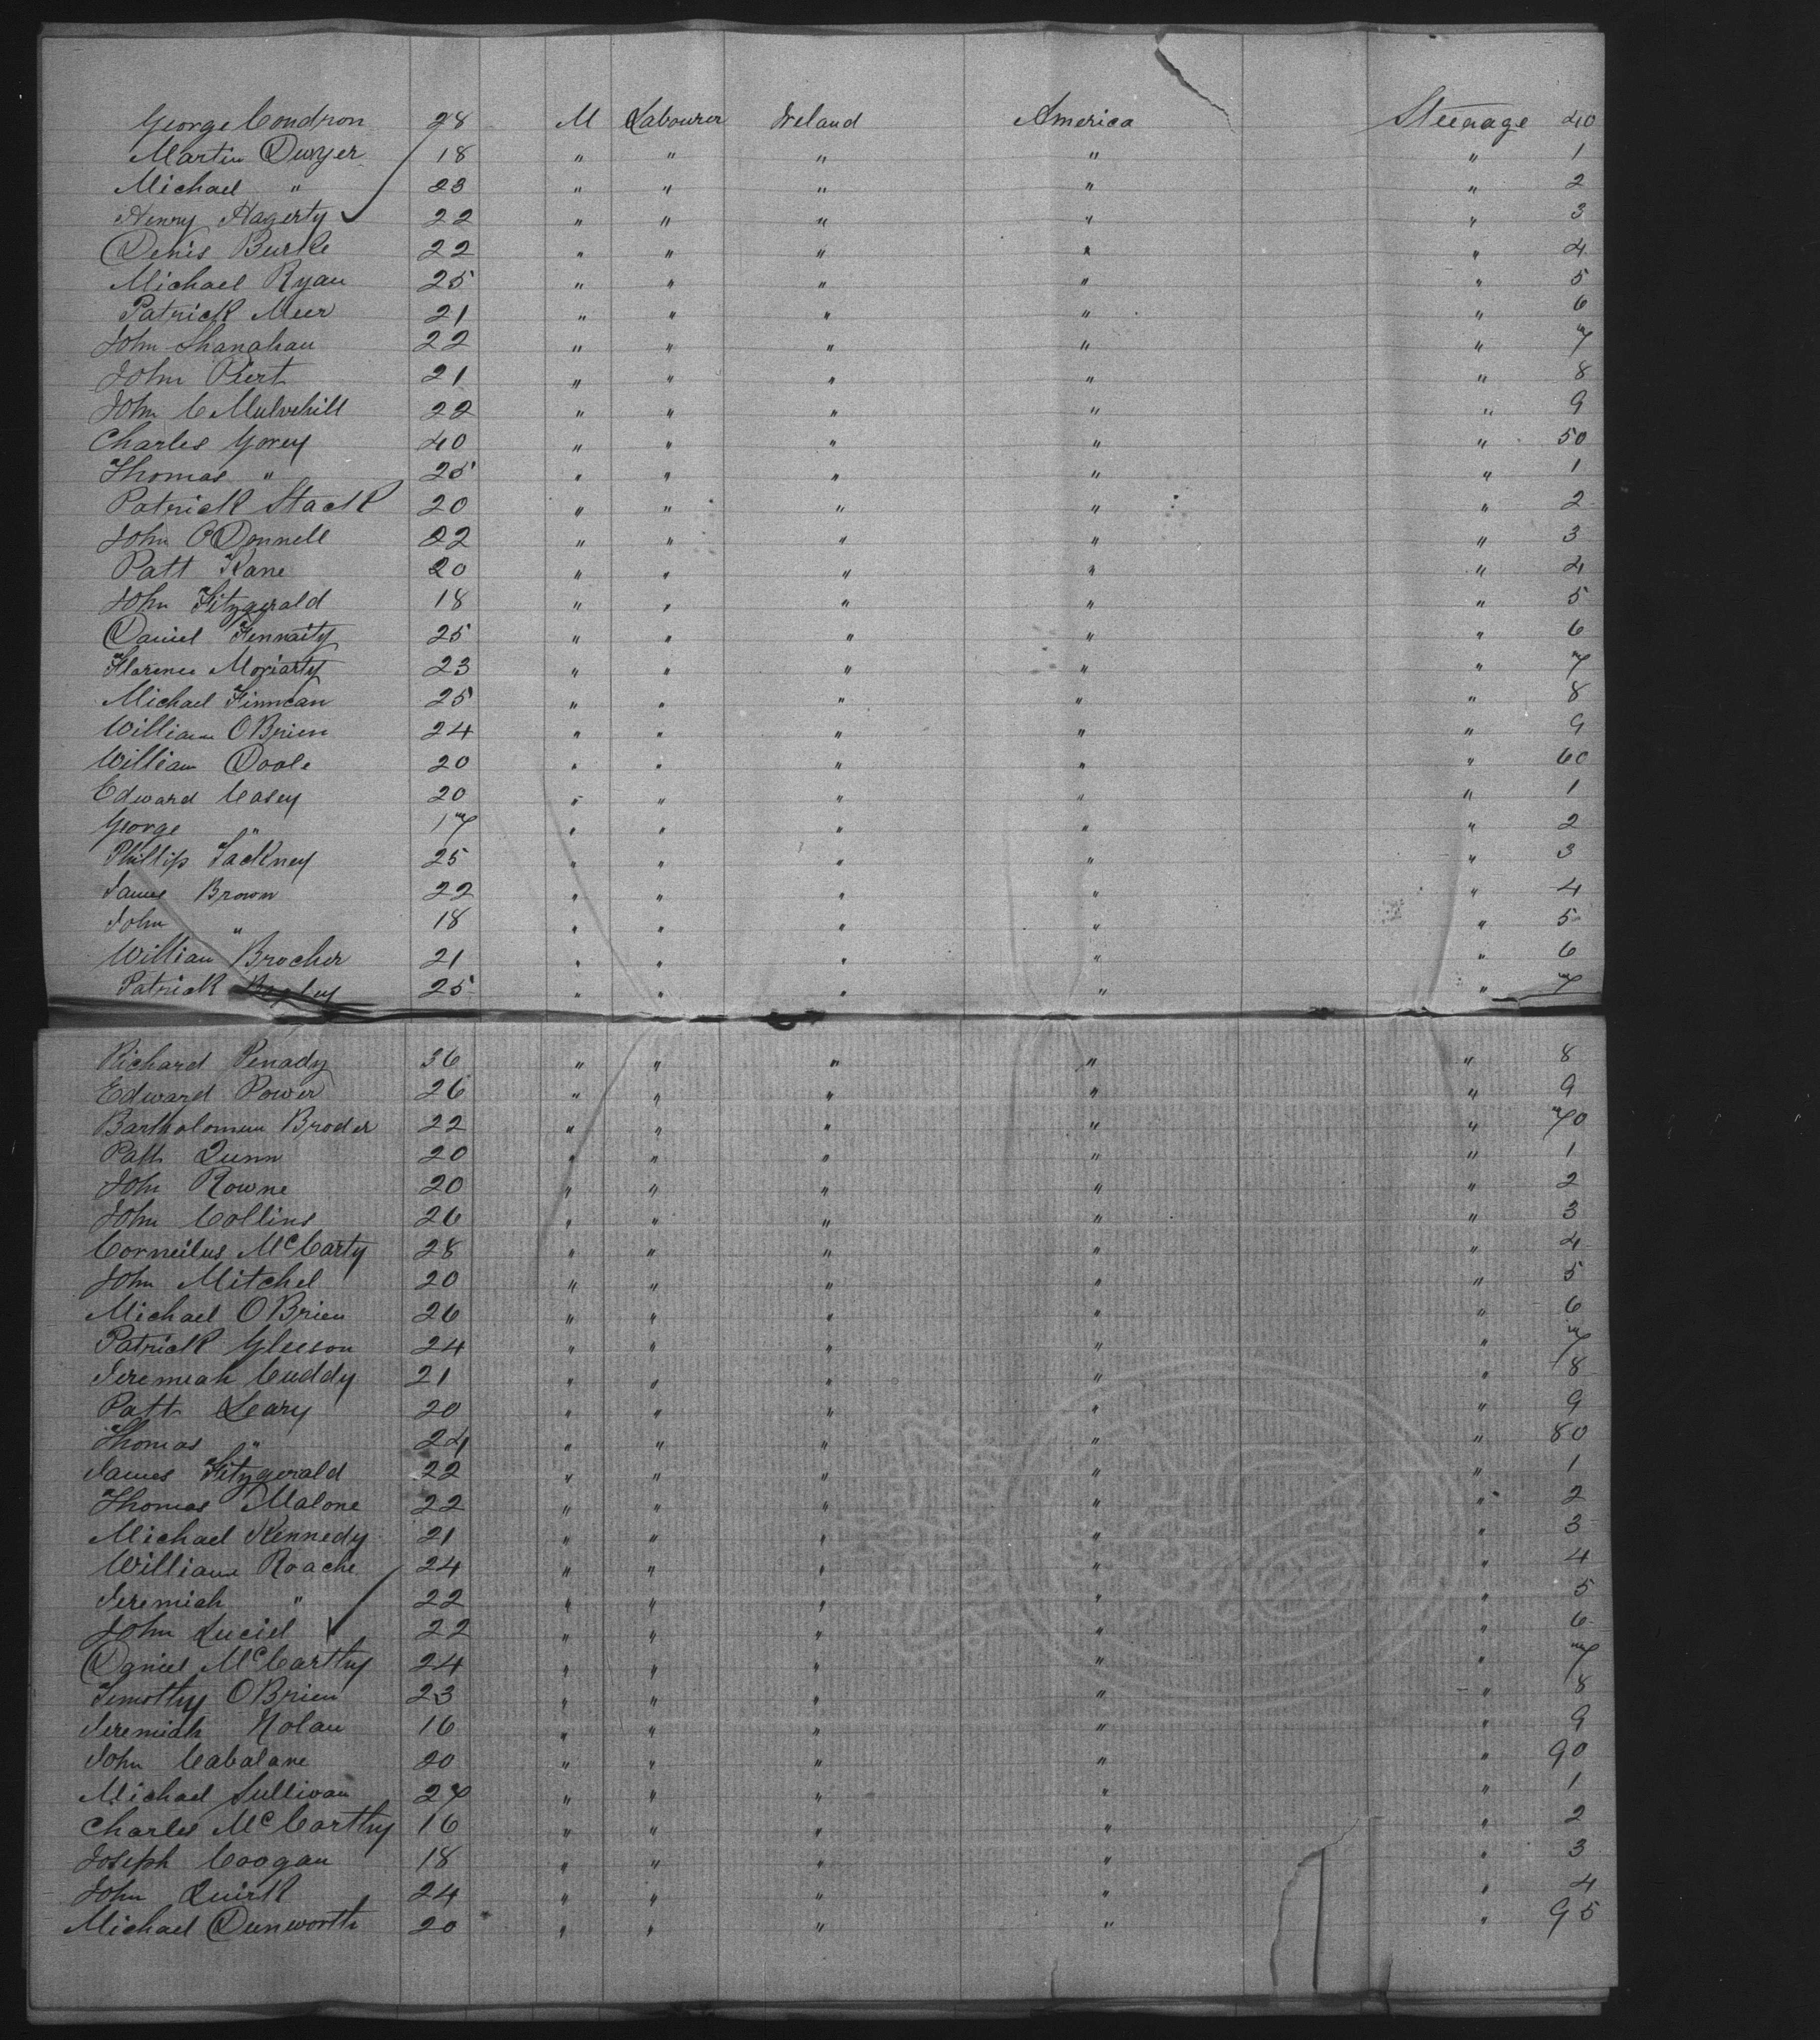 George Condron 28 M Labourer Ireland America Steerage 40
Martin Dwyer 18 " " " " " 1
Michael " 23 " " " " " 2
Henry Hagerty 22 " " " " " 3
Denis Burke 22 " " " " " 4
Michael Ryan 25 " " " " " 5
Patrick Meer 21 " " " " " 6
John Shanahan 22 " " " " " 7
John Piert 21 " " " " " 8
John C Mulvehill 22 " " " " " 9
Charles Gorey 40 " " " " " 50
Thomas " 25 " " " " " 1
Patrick Stack 20 " " " " " 2
John O'Donnell 22 " " " " " 3
Patt Kane 20 " " " " " 4
John Fitzgerald 18 " " " " " 5
Daniel Fennaity 25 " " " " " 6
Florence Moriarty 23 " " " " " 7
Michael Finncan 25 " " " " " 8
William OBrien 24 " " " " " 9
William Doole 20 " " " " " 60
Edward Casey 20 " " " " " 1
George " 17 " " " " " 2
Phillip Tackney 25 " " " " " 3
James Brown 22 " " " " " 4
John " 18 " " " " " 5
William Brocher 21 " " " " " 6
Patrick 25 " " " " " 7
Richard Penady 36 " " " " " 8
Edward Power 26 " " " " " 9
Bartholomew Broder 22 " " " " " 70
Patt Qunn 20 " " " " " 1
John Rowne 20 " " " " " 2
John Collins 26 " " " " " 3
Corneilus McCarty 28 " " " " " 4
John Mitchel 20 " " " " " 5
Michael OBrien 26 " " " " " 6
Patrick Gleeson 24 " " " " " 7
Jeremiah Cuddy 21 " " " " " 8
Patt Leary 20 " " " " " 9
Thomas " 24 " " " " " 80
James Fitzgerald 22 " " " " " 1
Thomas Malone 22 " " " " " 2
Michael Kennedy 21 " " " " " 3
William Roache 24 " " " " " 4
Jeremiah " 22 " " " " " 5
John Luciel 22 " " " " " 6
Daniel McCarthy 24 " " " " " 7
Timothy OBrien 23 " " " " " 8
Jeremiah Nolan 16 " " " " " 9
John Cabalane 20 " " " " " 90
Michael Sullivan 27 " " " " " 1
Charles McCarthy 16 " " " " " 2
Joseph Coogan 18 " " " " " 3
John Quirk 24 " " " " " 4
Michael Dunworth 20 " " " " " 95